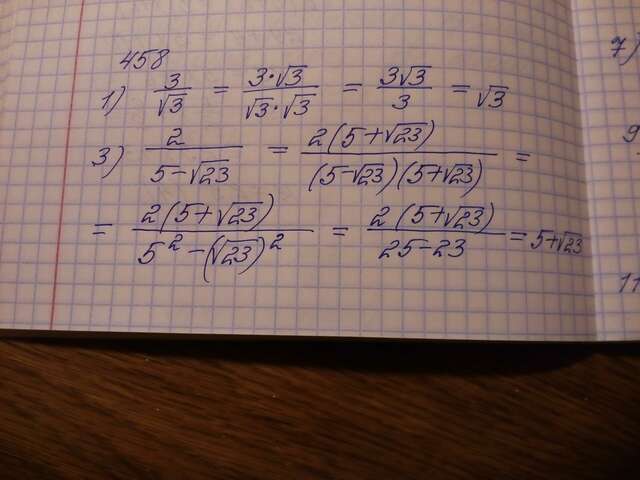 458
1) 3/√3 = 3·√3/√3·√3 = 3√3/3 = √3
3) 2/5-√23 = 2(5+√23)/(5-√23)(5+√23) =
= 2(5+√23)/5²-(√23)² = 2(5+√23)/25-23 = 5+√23
7)
9
11